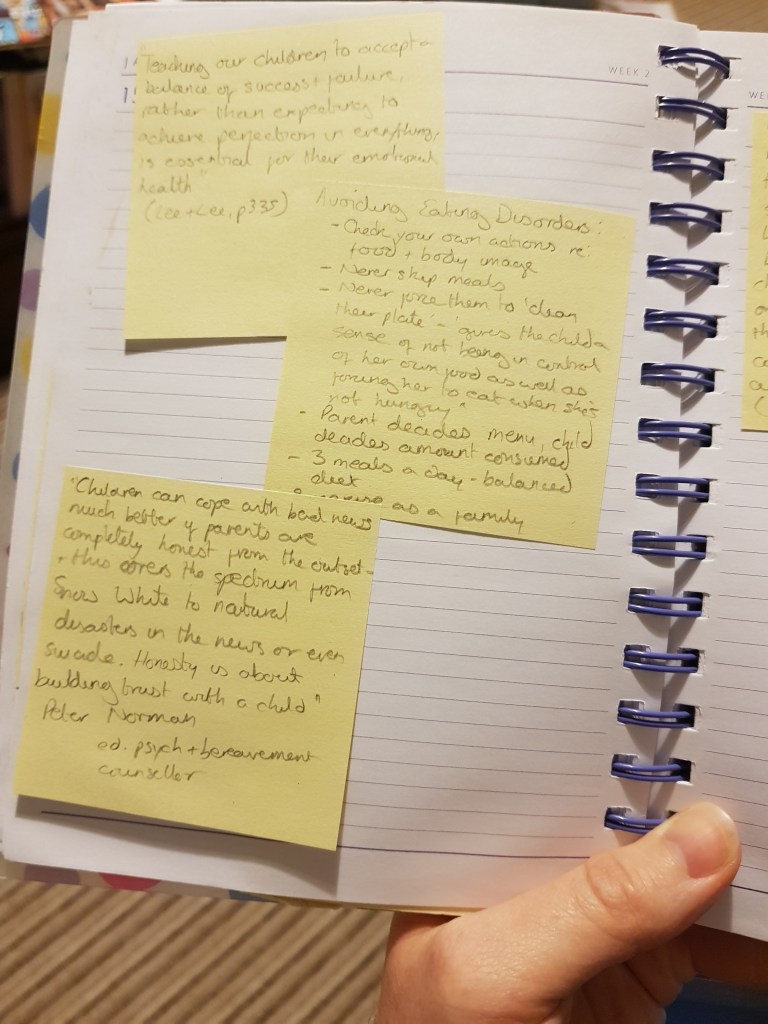 WEEK 2
"Teaching our children to accept a
balance of success + failure,
rather than expecting to
achieve perfection in everything,
is essential for their emotional
health"
(Lee + Lee, p335)
Avoiding Eating Disorders:
- Check your own actions re:
food + body image
- Never skip meals
- Never force them to 'clean
their plate' - "gives the child a
sense of not being in control
of her own food as well as
forcing her to eat when she's
not hungry"
- Parent decides menu, child
decides amount consumed
- 3 meals a day - balanced
diet
as a family
"Children can cope with bad news
much better if parents are
completely honest from the outset -
this covers the spectrum from
Snow White to natural
disasters in the news or even
suicide. Honesty is about
building trust with a child"
Peter Norman
ed. psych + bereavement
counsellor